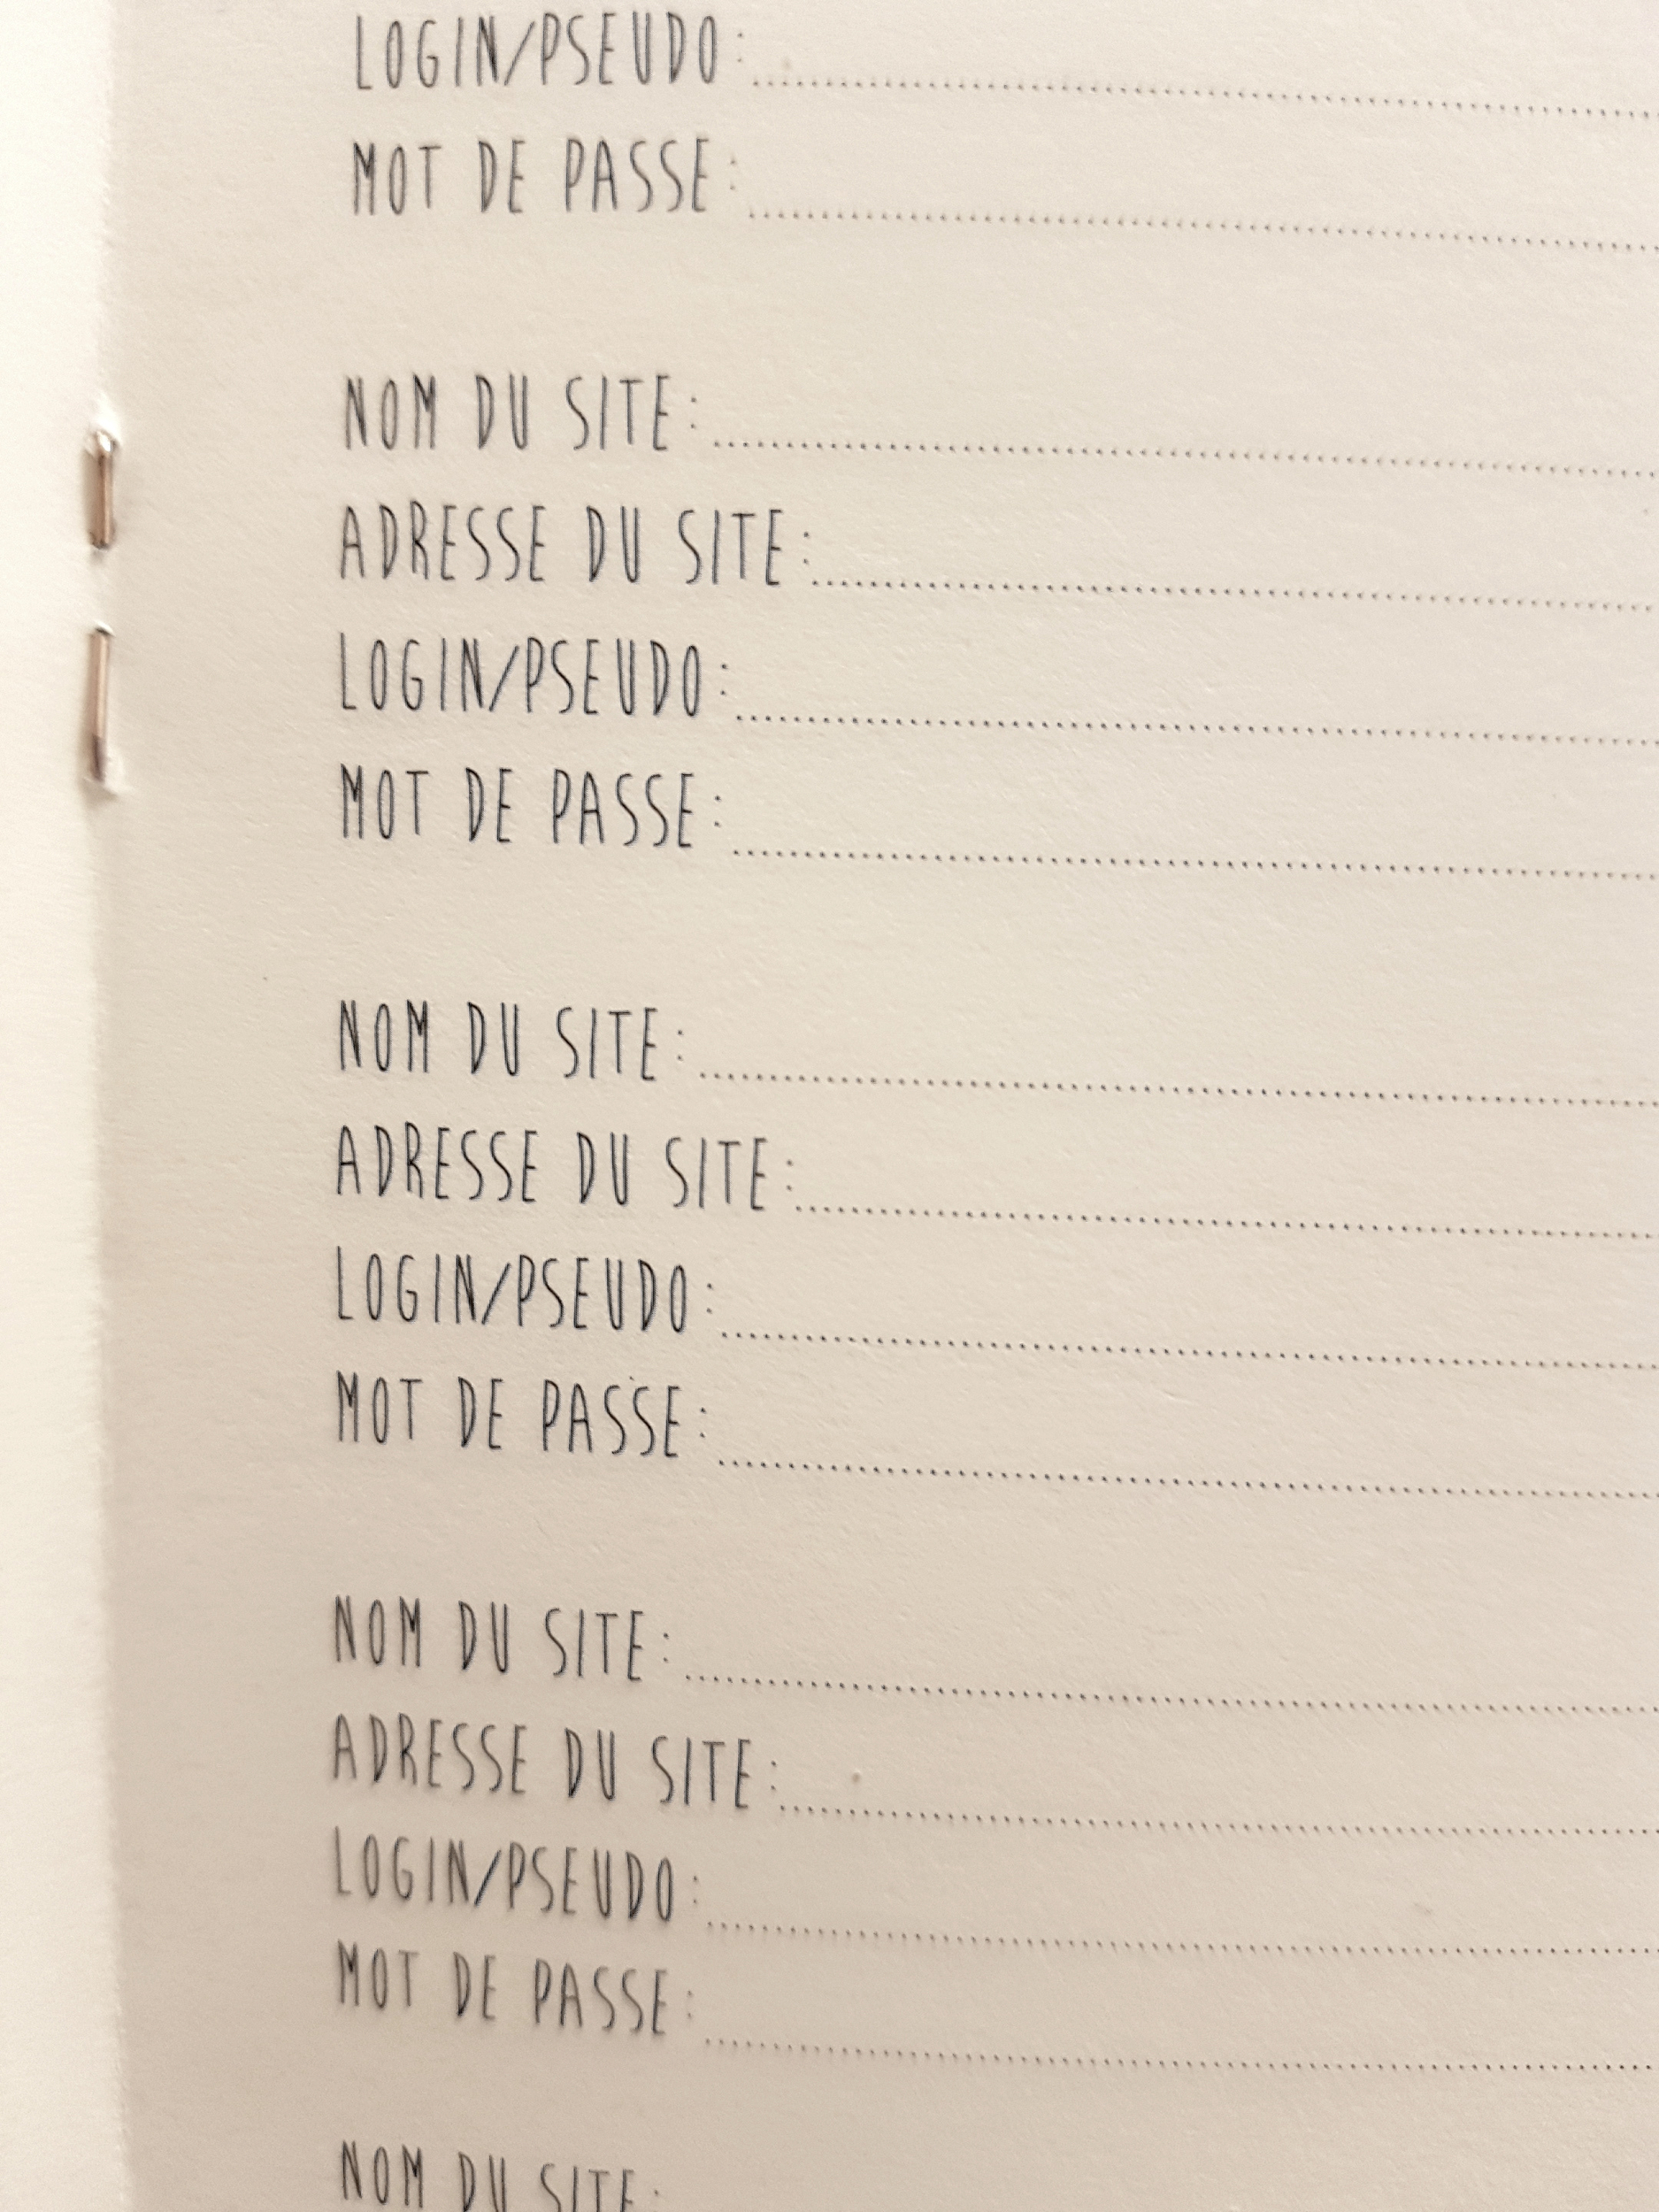 LOGIN/PSEUDO:
MOT DE PASSE:
NOM DU SITE:
ADRESSE DU SITE:
LOGIN/PSEUDO:
MOT DE PASSE:
NOM DU SITE:
ADRESSE DU SITE:
LOGIN/PSEUDO:
MOT DE PASSE:
NOM DU SITE:
ADRESSE DU SITE:
LOGIN/PSEUDO:
MOT DE PASSE:
NOM DU SITE: